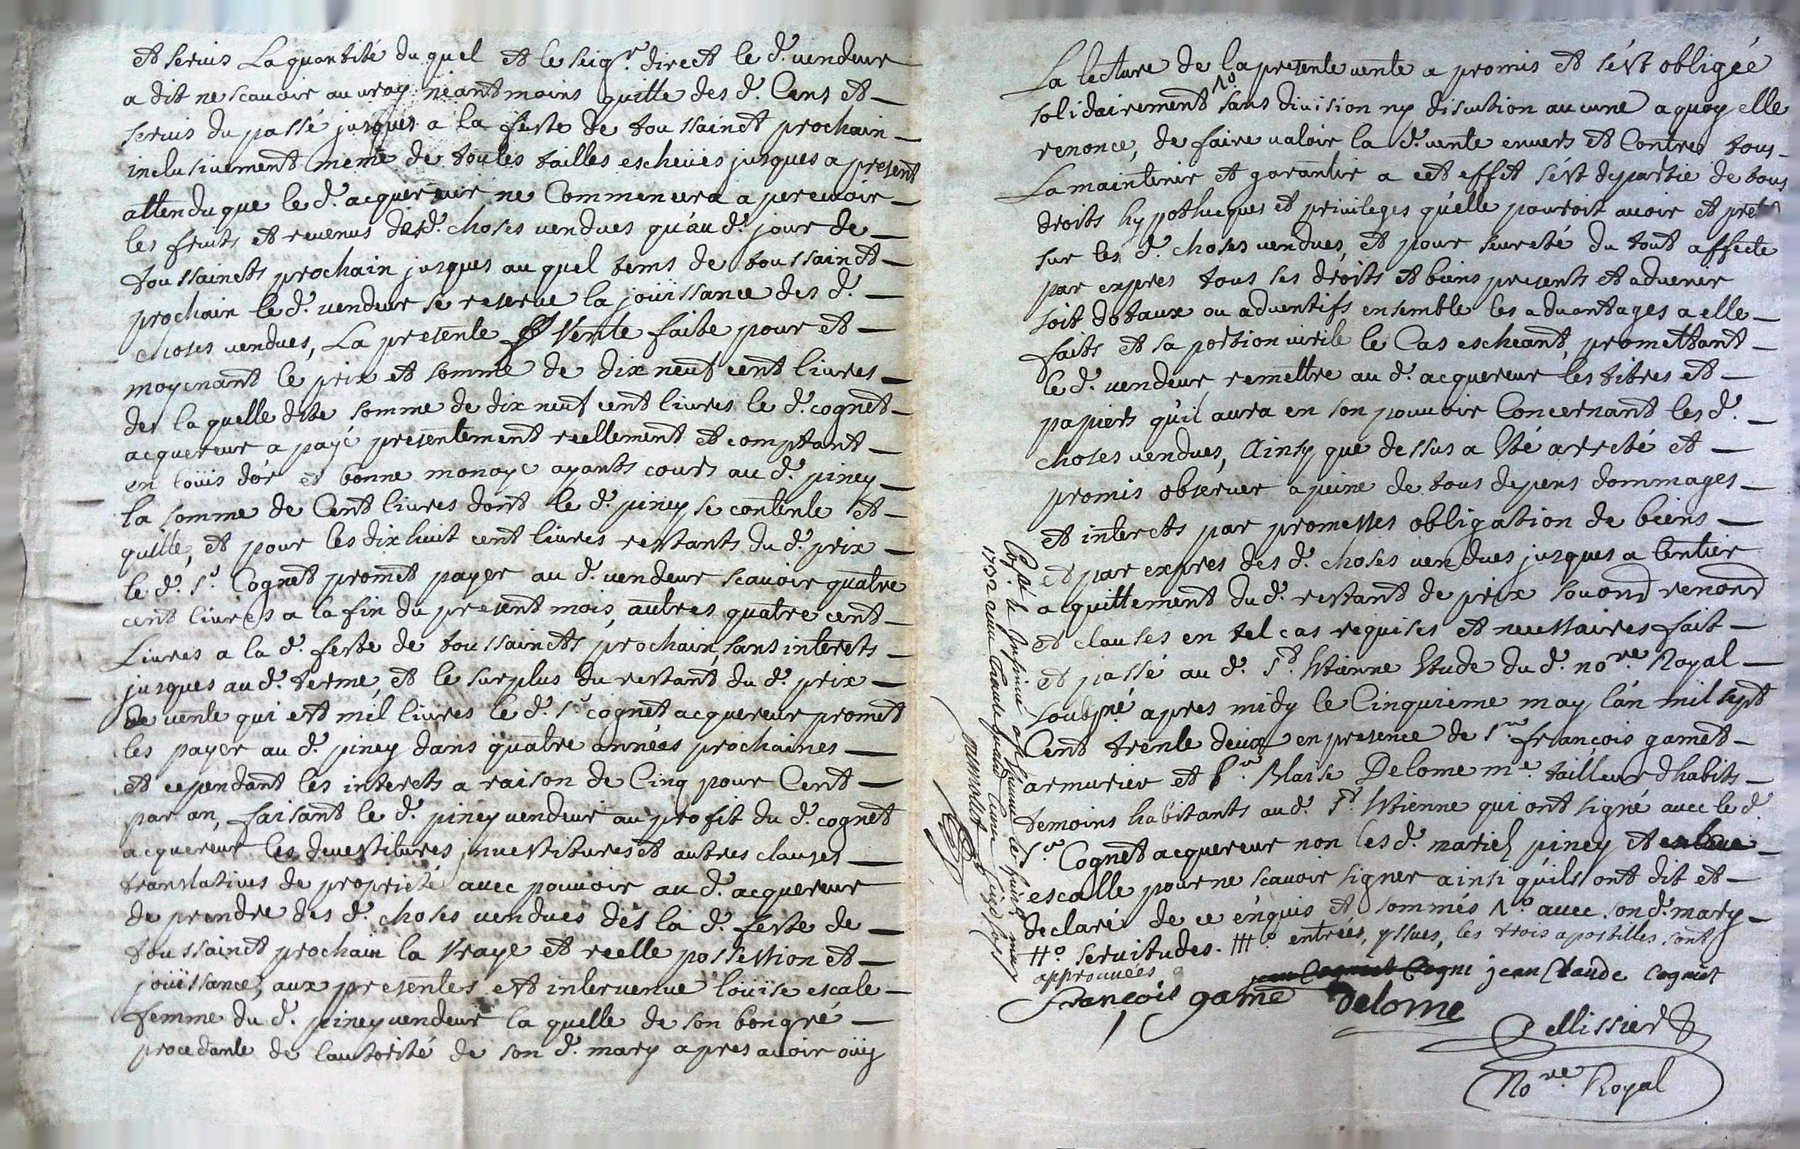 et servis La quantité du quel et le seigr. direct le d. vendeur
a dit ne scavoir au vray néantmoins quitte des d. Cens et
servis du passé jusques a la feste de toussainct prochain
inclusivement meme de toutes tailles escheües jusques a present
attendu que le d. acquereur ne Commencera a percevoir
les fruits et revenus desd. choses vendues qu'au d. jour de
toussaincts prochain jusques au quel tems de toussainct
prochain le d. vendeur se reserve la joüissance des d.
choses vendues, La presente Vente faite pour et
moyenant le prix et somme de dix neuf cent livres
de la quelle dite somme de dix neuf cent livres le d. cognet
acquereur a payé presentement reellement et comptant
en loüis d'or et bonne monoye ayants cours au d. piney
la somme de Cent livres dont le d. piney se contente et
quitte, et pour les dix huit cent livres restants du d. prix
le d. sr. Cognet promet payer au d. vendeur scavoir quatre
cent livres a la fin du present mois, autres quatre cent
Livres a la d. feste de toussaincts prochain, sans interets
jusques au d. terme, et le surplus du restant du d. prix
de vente qui est mil livres le d. sr. cognet acquereur promet
les payer au d. piney dans quatre années prochaines
et cependant les interets a raison de Cinq pour Cent
par an, faisant le d. piney vendeur au profit du d. cognet
acquereur les devestitures investitures et autres clauses
translatives de proprieté avec pouvoir au d. acquereur
de prendre des d. choses vendues dés la d. feste de
toussainct prochain la vraye et reelle possession et
joüissance, aux presentes est intervenue loüise escale
femme du d. piney vendeur la quelle de son bon gré
procedante de l'autorité de son d. mary apres avoir oüy
La lecture de la presente vente a promis et s'est obligée
solidairement No sans division ny discution aucune a quoy elle
renonce, de faire valoir la d. vente envers et Contre tous
La maintenir et garantir a cet effet s'est departie de tous
droits hypothecques et privileges qu'elle pourroit avoir et
sur les d. choses vendues, et pour seureté du tout affecte
par expres tous ses droits et biens presents et advenir
soit dotaux ou adventifs ensemble les advantages a elle
faits et sa portion virile le Cas escheant, promettant
le d. vendeur remettre au d. acquereur les titres et
papiers qu'il aura en son pouvoir Concernant les d.
choses vendues, Ainsy que dessus a été arreté et
promis observer a peine de tous depens dommages
et interets par promesses obligation de biens
et par expres des d. choses vendues jusques a l'entier
acquittement du d. restant de prix renond
et clauses en tel cas requises et necessaires fait
et passé au d. st. Etienne Etude du d. nore. Royal
soubsné apres midy le Cinquieme may l'an mil sept
Cent trente deux en presence de sr. françois gamet
armurier et sr. Blaise Delome me. tailleur d'habits
temoins habitants aud. st. Etienne qui ont signé avec le d.
sr. Cognet acquereur non les d. mariés piney et
escalle pour ne scavoir signer ainsi qu'ils ont dit et
declaré de ce enquis et sommés No. avec son d. mary
#o. servitudes. ##o. entrées, yssues, les trois apostilles sont
approuvées
jean Claude Cognet
François game Delome
Pellissier
Nore. Royal